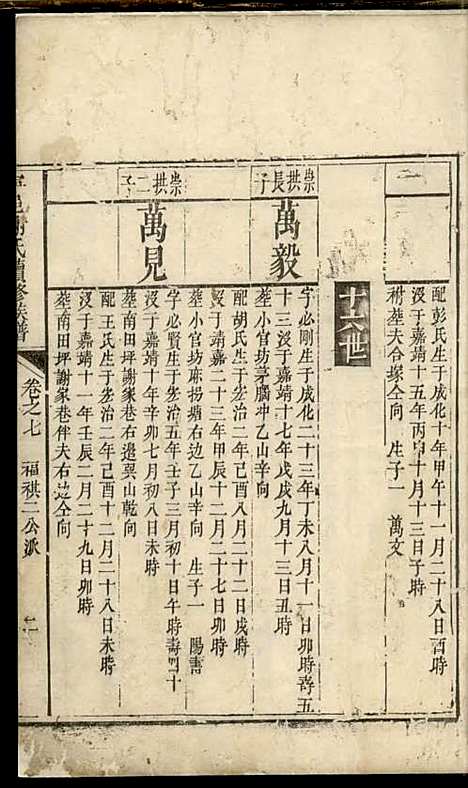 配彭氏生于成化十年甲午十一月二十八日酉時
沒于嘉靖十五年丙申十月十三日子時
祔塟夫合塚仝向 生子一 萬文
十六世
崇拱長子
萬毅
字必剛生于成化二十三年丁未八月十一日卯時壽五
十三沒于嘉靖十七年戊戌九月十三日丑時
塟小官坊茅腦冲乙山辛向
配胡氏生于弘治二年己酉八月二十二日戌時
沒于靖嘉二十三年甲辰十二月二十七日卯時
塟小官坊麻拐塘右边乙山辛向 生子一 陽壽
崇拱二子
萬見
字必賢生于弘治五年壬子三月初十日午時壽四十
沒于嘉靖十年辛卯七月初八日未時
塟南田坪謝家巷右邊巽山乾向
配王氏生于弘治二年己酉十二月二十八日未時
沒于嘉靖十一年壬辰二月二十九日卯時
塟南田坪謝家巷伴夫右边仝向
氏續修族譜
卷之七 福祺二公派 二